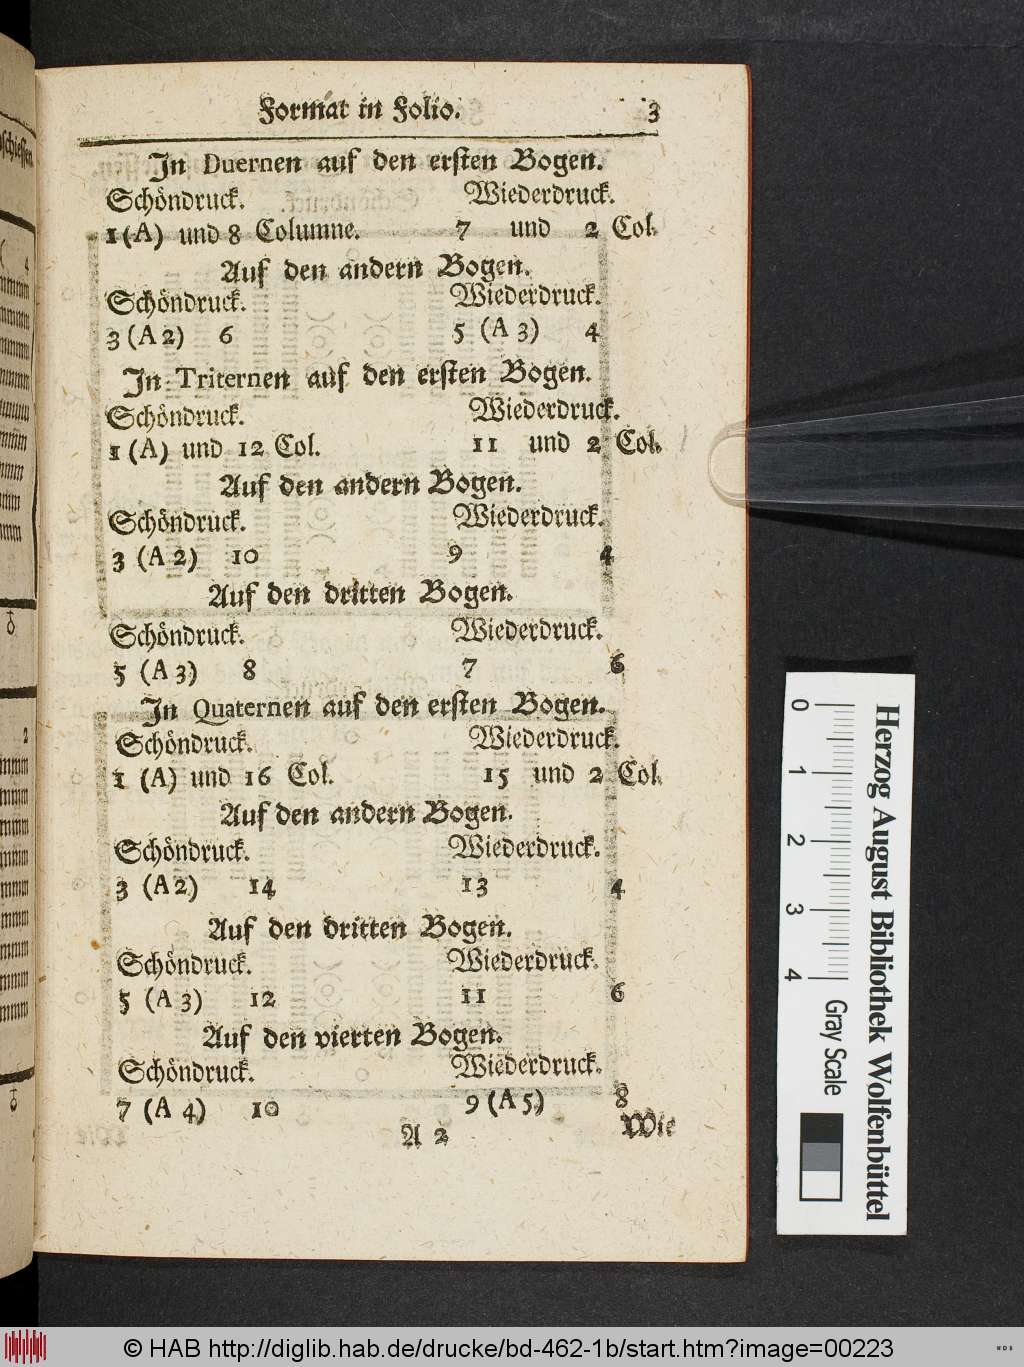 Format in Folio. 3
In Duernen auf den ersten Bogen.
Schöndruck. Wiederdruck.
1 (A) und 8 Columne. 7 und 2 Col.
Auf den andern Bogen.
Schöndruck. Wiederdruck.
3 (A 2) 6 5 (A 3) 4
In Triternen auf den ersten Bogen.
Schöndruck. Wiederdruck.
1 (A) und 12 Col. 11 und 2 Col.
Auf den andern Bogen.
Schöndruck. Wiederdruck.
3 (A 2) 10 9 4
Auf den dritten Bogen.
Schöndruck. Wiederdruck.
5 (A 3) 8 7 6
In Quaternen auf den ersten Bogen.
Schöndruck. Wiederdruck.
1 (A) und 16 Col. 15 und 2 Col.
Auf den andern Bogen.
Schöndruck. Wiederdruck.
3 (A 2) 14 13 4
Auf den dritten Bogen.
Schöndruck. Wiederdruck.
5 (A 3) 12 11 6
Auf den vierten Bogen.
Schöndruck. Wiederdruck.
7 (A 4) 10 9 (A 5) 8
A 2 Wie
Herzog August Bibliothek Wolfenbüttel
0 1 2 3 4 Gray Scale
© HAB http://diglib.hab.de/drucke/bd-462-1b/start.htm?image=00223